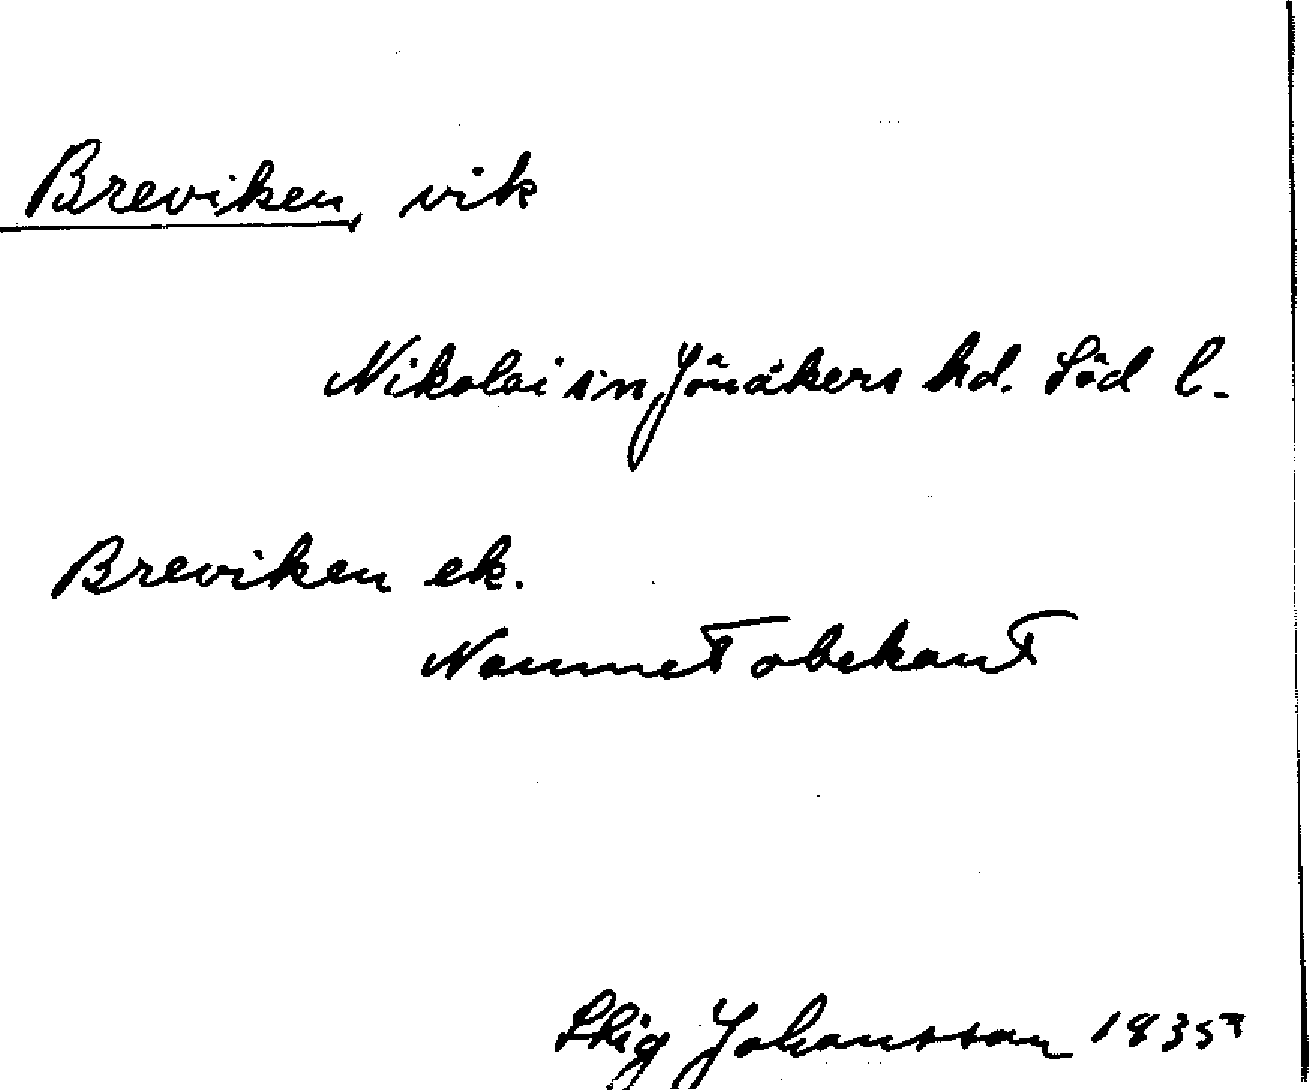 Breviken, vik
Nikolai sn Jönåkers hd. Söd l.
Breviken ek.
Namnet obekant
Stig Johansson 1935